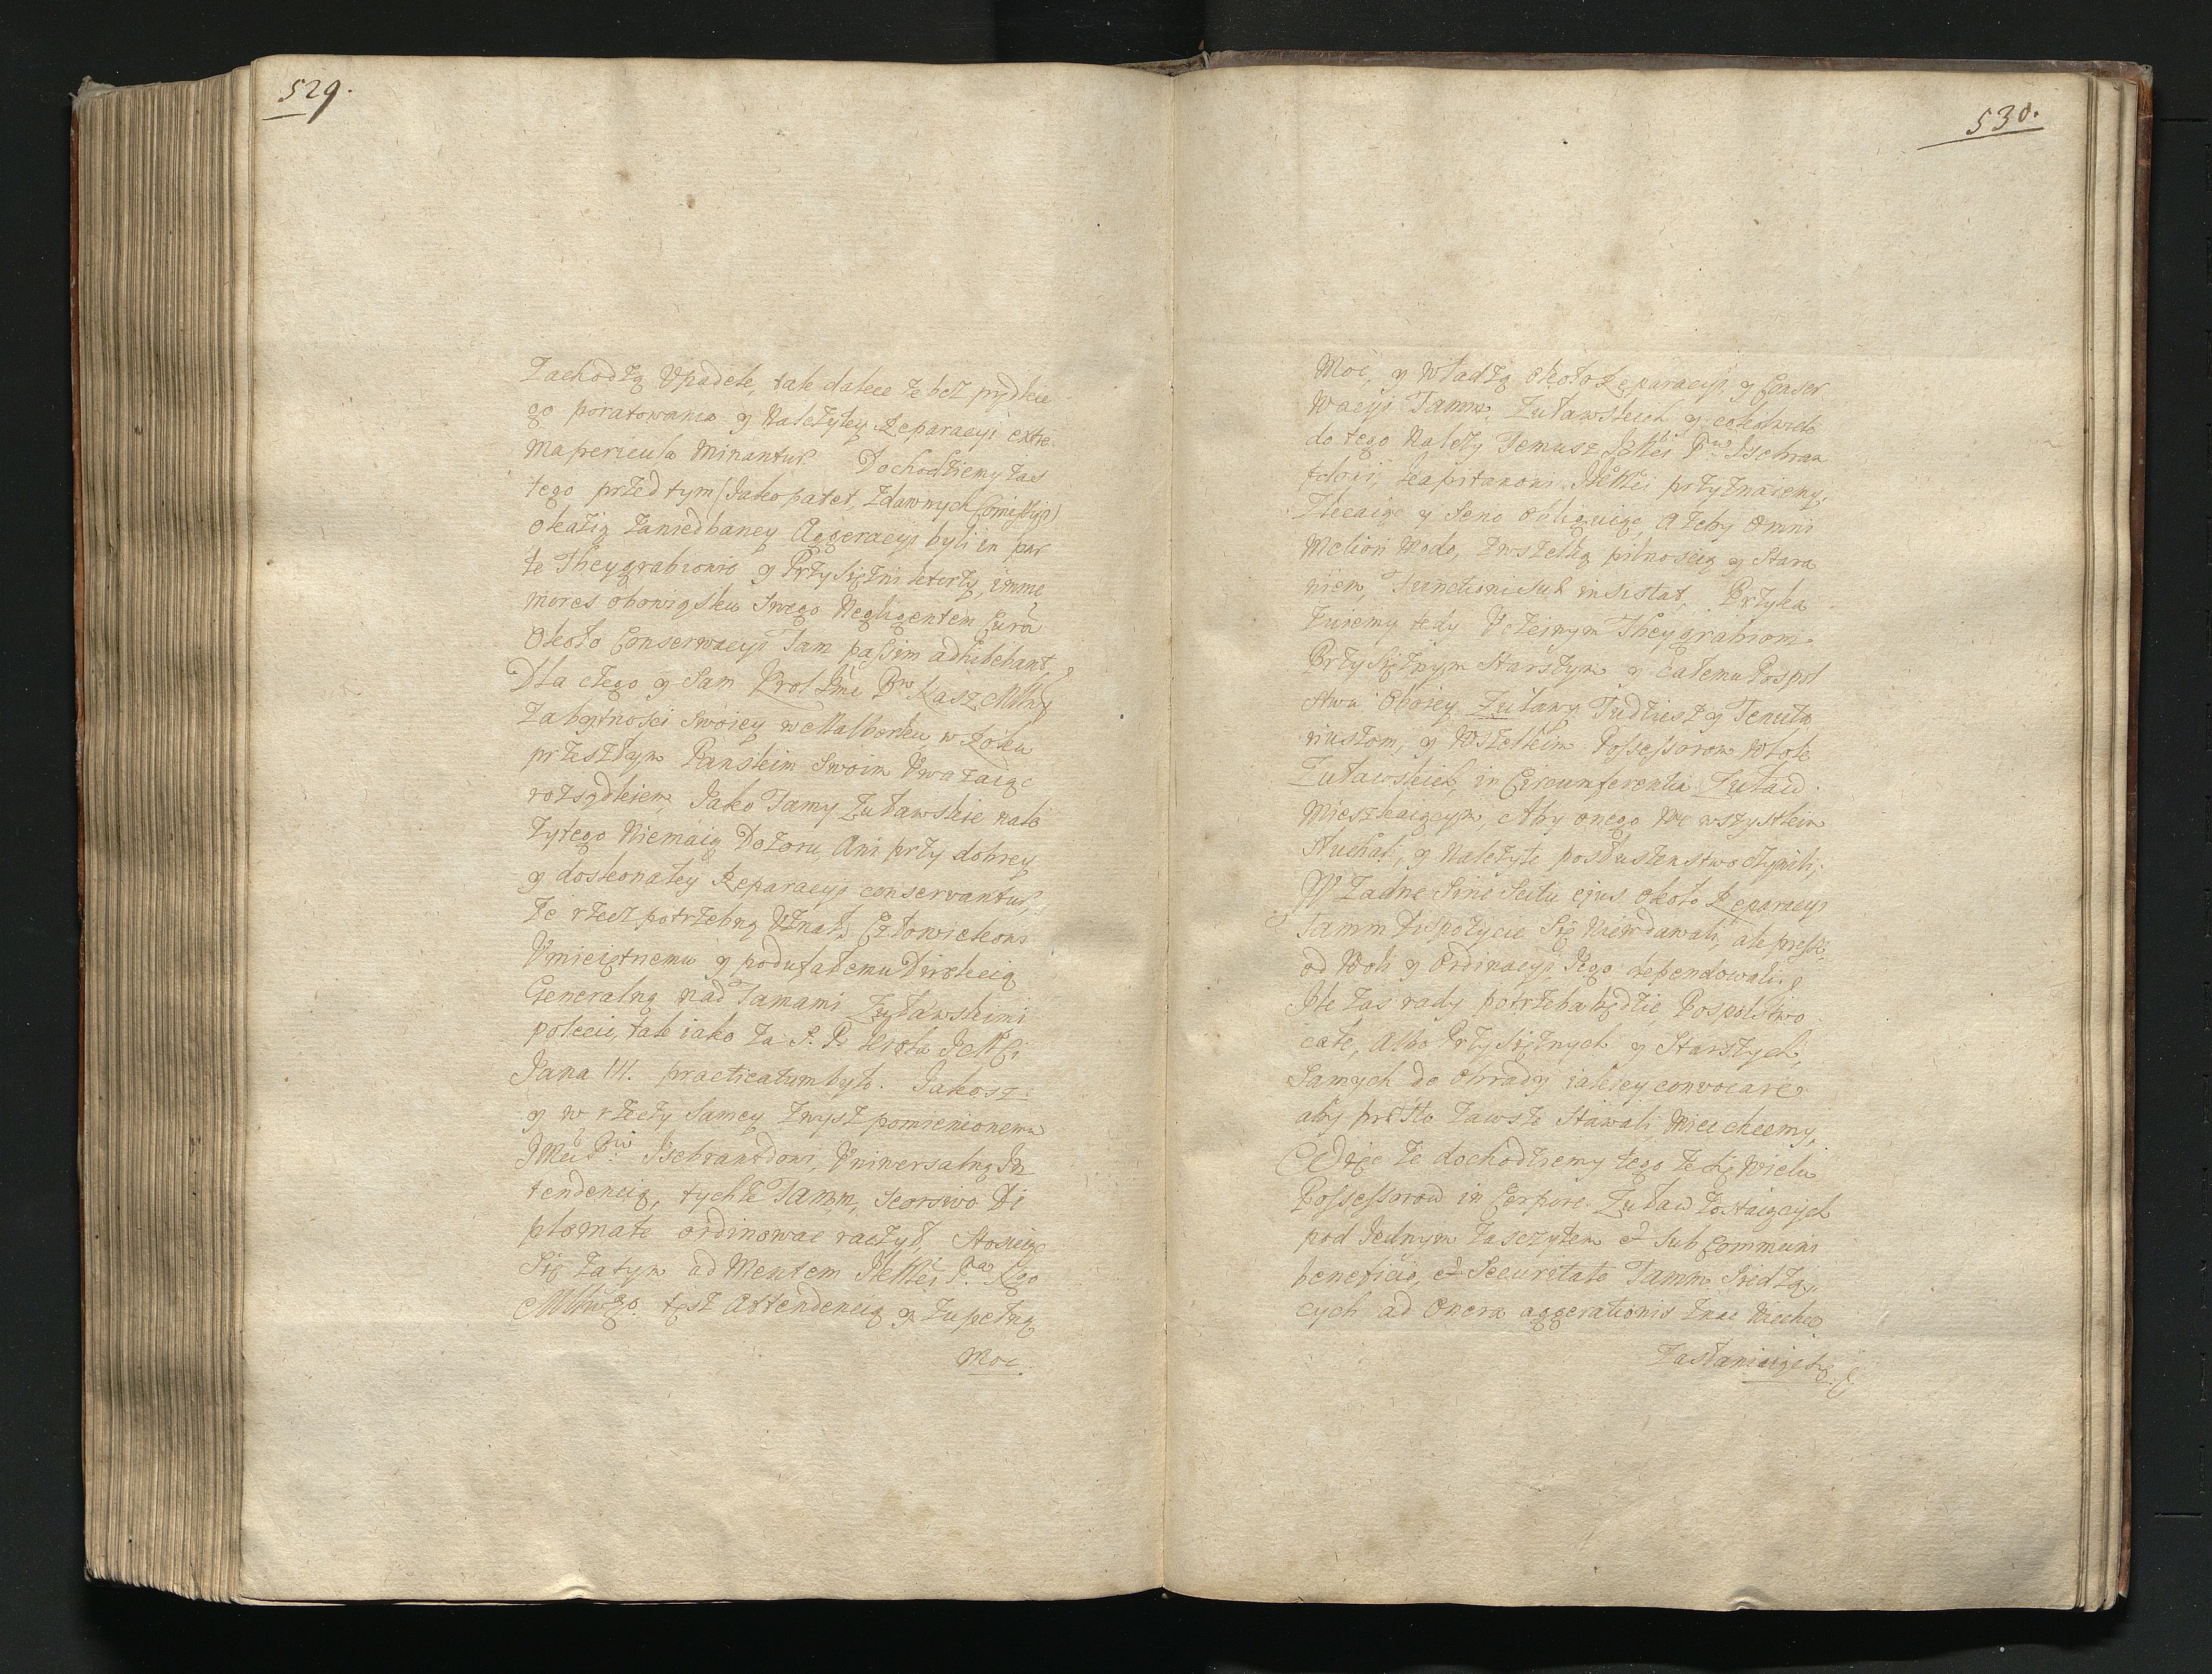 529.
Zachodzą Upadek, tak dalece że bez prędkie
go poratowania y Należytey Reparacyi extre
ma pericula Minantur. Dochodziemy zas
tego przed tym (Jako patet, z dawnych Comissyi)
okazią zaniedbaney Aggeracyi byli in par
te Theygrabiowie y Przysiężni ktorzy, imme
mores obowiązku swego Negligentem Curã
Około Conserwacyi Tam passim adhibebant
Dla czego y Sam Krol Jmć Pn Nasz Młwy
Zabytności swoiey w Malborku w Roku
przeszłym Panskim Swoim Uwazaiąc
rozsądkiem Jako Tamy Zuławskie nale
żytego Niemaią Dozoru, Ani przy dobrey
y doskonałey Reparacyi conservantur,
że rzecz potrzebną Uznał, Człowiekowi
Umieiętnemu y podufałemu Dirrekcią
Generalną nad Tamami Zuławskimi
polecic, tak iako za S. P. Krola JeMći
Jana III. practicatum było. Jakosz
y w rzeczy Samey zwysz pomienionemu
JMći Pnu Isebrantdowi, Uniwersalną In
tendencią, tychże Tamm, Seorsivo Di
plomate ordinowac raczył, Stosuiąc
Się Zatym ad Mentem JKMći Pa Ngo
Młwgo. tęsz Attendencią y Zupełną
Moc
530.
Moc, y Władzą około Reparacyi y Conser
wacyi Tamm, Zuławskich y cokolwiek
do tego Należy Temusz JeMći Pnu Isebran
tdowi, Kapitanowi JKMći przyznaiemy,
Zlecaiąc y Seno obliguiąc, Ażeby Omni
Meliori Modo, zwszelką pilnoscią y Stara
niem, Functioni Suæ insistat, Przyka
zuiemy tedy Uczciwym Theygrabiom
Przysiężnym Starszym y całemu Pospol
stwu Oboiey Zuławy Tudziesz y Tenuta
riuszom, y Wszelkim Possessorom Włok
Zuławskich, in Circumferentia Zuław
Mieszkaiącym, Aby onego We wszystkim
Słuchali, y Należyte posłuszenstwo czynili,
W Zadne Sine Scitu ejus około Reparacyi
Tamm Dispozycie Się Niewdawali, ale
od Woli y Ordinacyi Jego dependowali,
Jle zas rady potrzeba będzie, Pospolstwo
całe, Albo Przysiężnych y Starszych,
Samych do Obrady iakiey convocare
aby prosto zawsze Stawali, Miec chcemy,
Więc że dochodziemy tego że Się wielu
Possessorow in Corpore Zuław zostaiących
pod Jednym Zasczytem et Sub Communi
beneficio, et Securitate Tamm Siedzą
cych ad Onera aggerationis znac Niechce
Zasłaniaiąc się